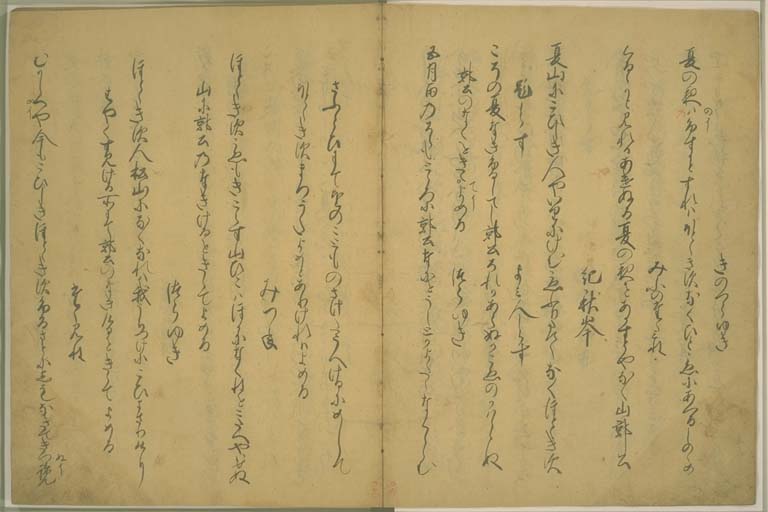 きのつらゆき
夏の夜はふすかとすれはほとゝきすなくひとこゑにあくるしのゝめ
みふのたゝみね
くるゝかとみれはあけぬる夏の夜をあかすとやなく山郭公
紀秋岑
夏山にこひしき人やいりにけむこゑふりたてゝなくほとゝきす
題しらす　よみ人しらす
こその夏なきふるしてし郭公それかあらぬかこゑのかはらぬ
郭公のなくをきゝてよめる　つらゆき
五月雨のそらもとゝろに郭公なにをうしとかよたゝなくらむ
さふらひにてをのことものさけたうへけるにめして
ほとゝきすまつうたよめとありけれはよめる
みつね
ほとゝきすこゑもきこえす山ひこはほかになくねをこたへやはせぬ
山に郭公のなきけるをきゝてよめる
つらゆき
ほとゝきす人松山になくなれは我うちつけにこひまさりけり
はやくすみける所にて郭公のなきけるをきゝてよめる
たゝみね
むかしへや今もこひしきほとゝきすふるさとにしもなきてきつ覧